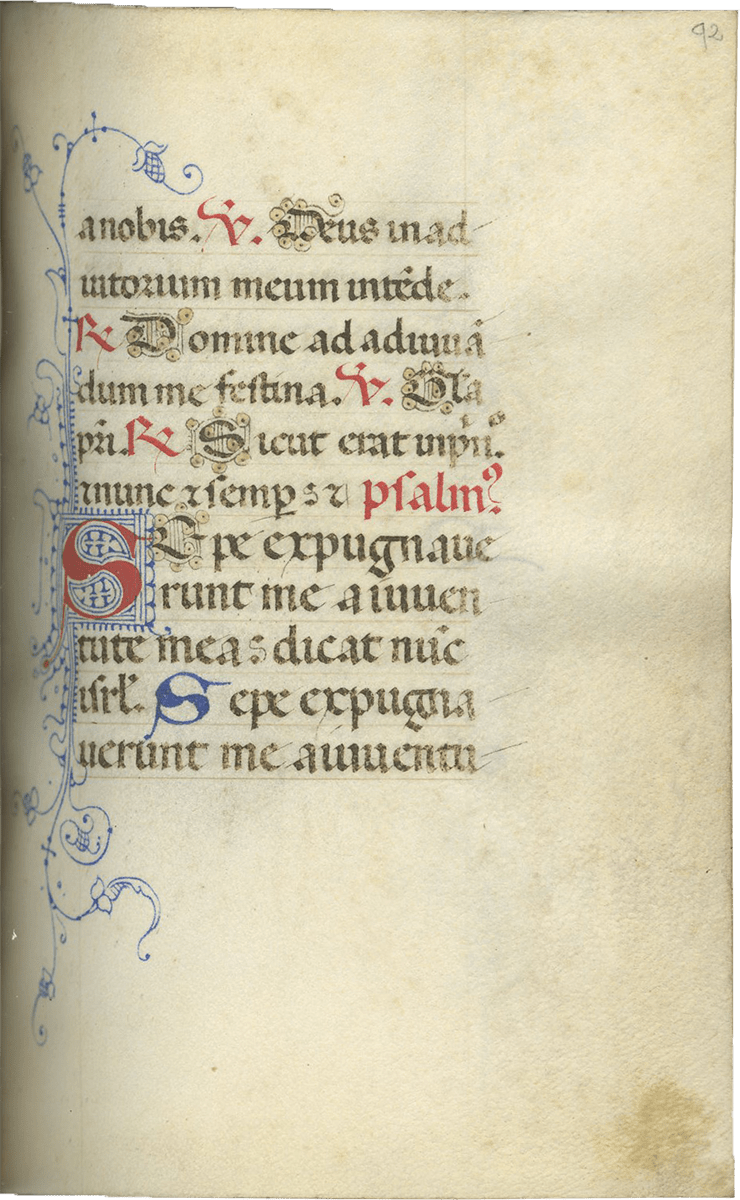 92
a nobis. ℣. Deus in ad
iutorium meum intēde.
℟ Domine ad adiuuā
dum me festina. ℣. Gl'a
pr̄i. ℟ Sicut erat in prī.
⁊ nunc ⁊ semꝑ s ⁊ psalmꝰ.
SEpe expugnaue
runt me a iuuen
tute mea s dicat nūc
isrl'. Sepe expugna
uerunt me a iuuentu